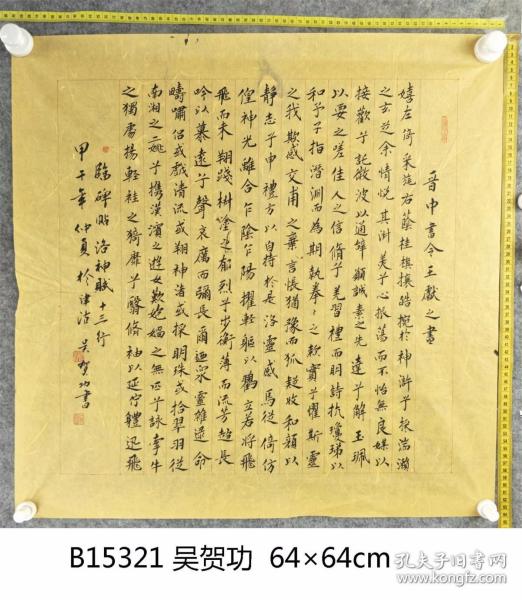 晉中書令王獻之書
嬉左倚采旄右蔭桂旗攘皓捥於神滸兮採湍瀨
之玄芝余情悅其淑美兮心振蕩而不怡無良媒以
接歡兮託微波以通辭願誠素之先達兮解玉珮
以要之嗟佳人之信脩兮羌習禮而明詩抗瓊珶以
和予兮指潛淵而為期執拳々之款實兮懼斯靈
之我欺感交甫之棄言悵猶豫而狐疑收和顏以
靜志兮申禮方以自持於是洛靈感焉徙倚仿
偟神光離合乍陰乍陽擢輕軀以鶴立若將飛
飛而未翔踐椒塗之郁烈兮步衡薄而流芳超長
吟以慕遠兮聲哀厲而彌長爾迺衆靈雜遝命
疇嘯侶或戲清流或翔神渚或採明珠或拾翠羽從
南湘之二姚兮携漢濱之遊女歎媧之無匹兮詠牽牛
之獨處揚輕袿之猗靡兮翳脩袖以延佇體迅飛
臨碑貼洛神賦十三行
甲午年仲夏於津沽吴賀功書
B15321 吴贺功 64×64cm
孔夫子旧书网
kongfz.com